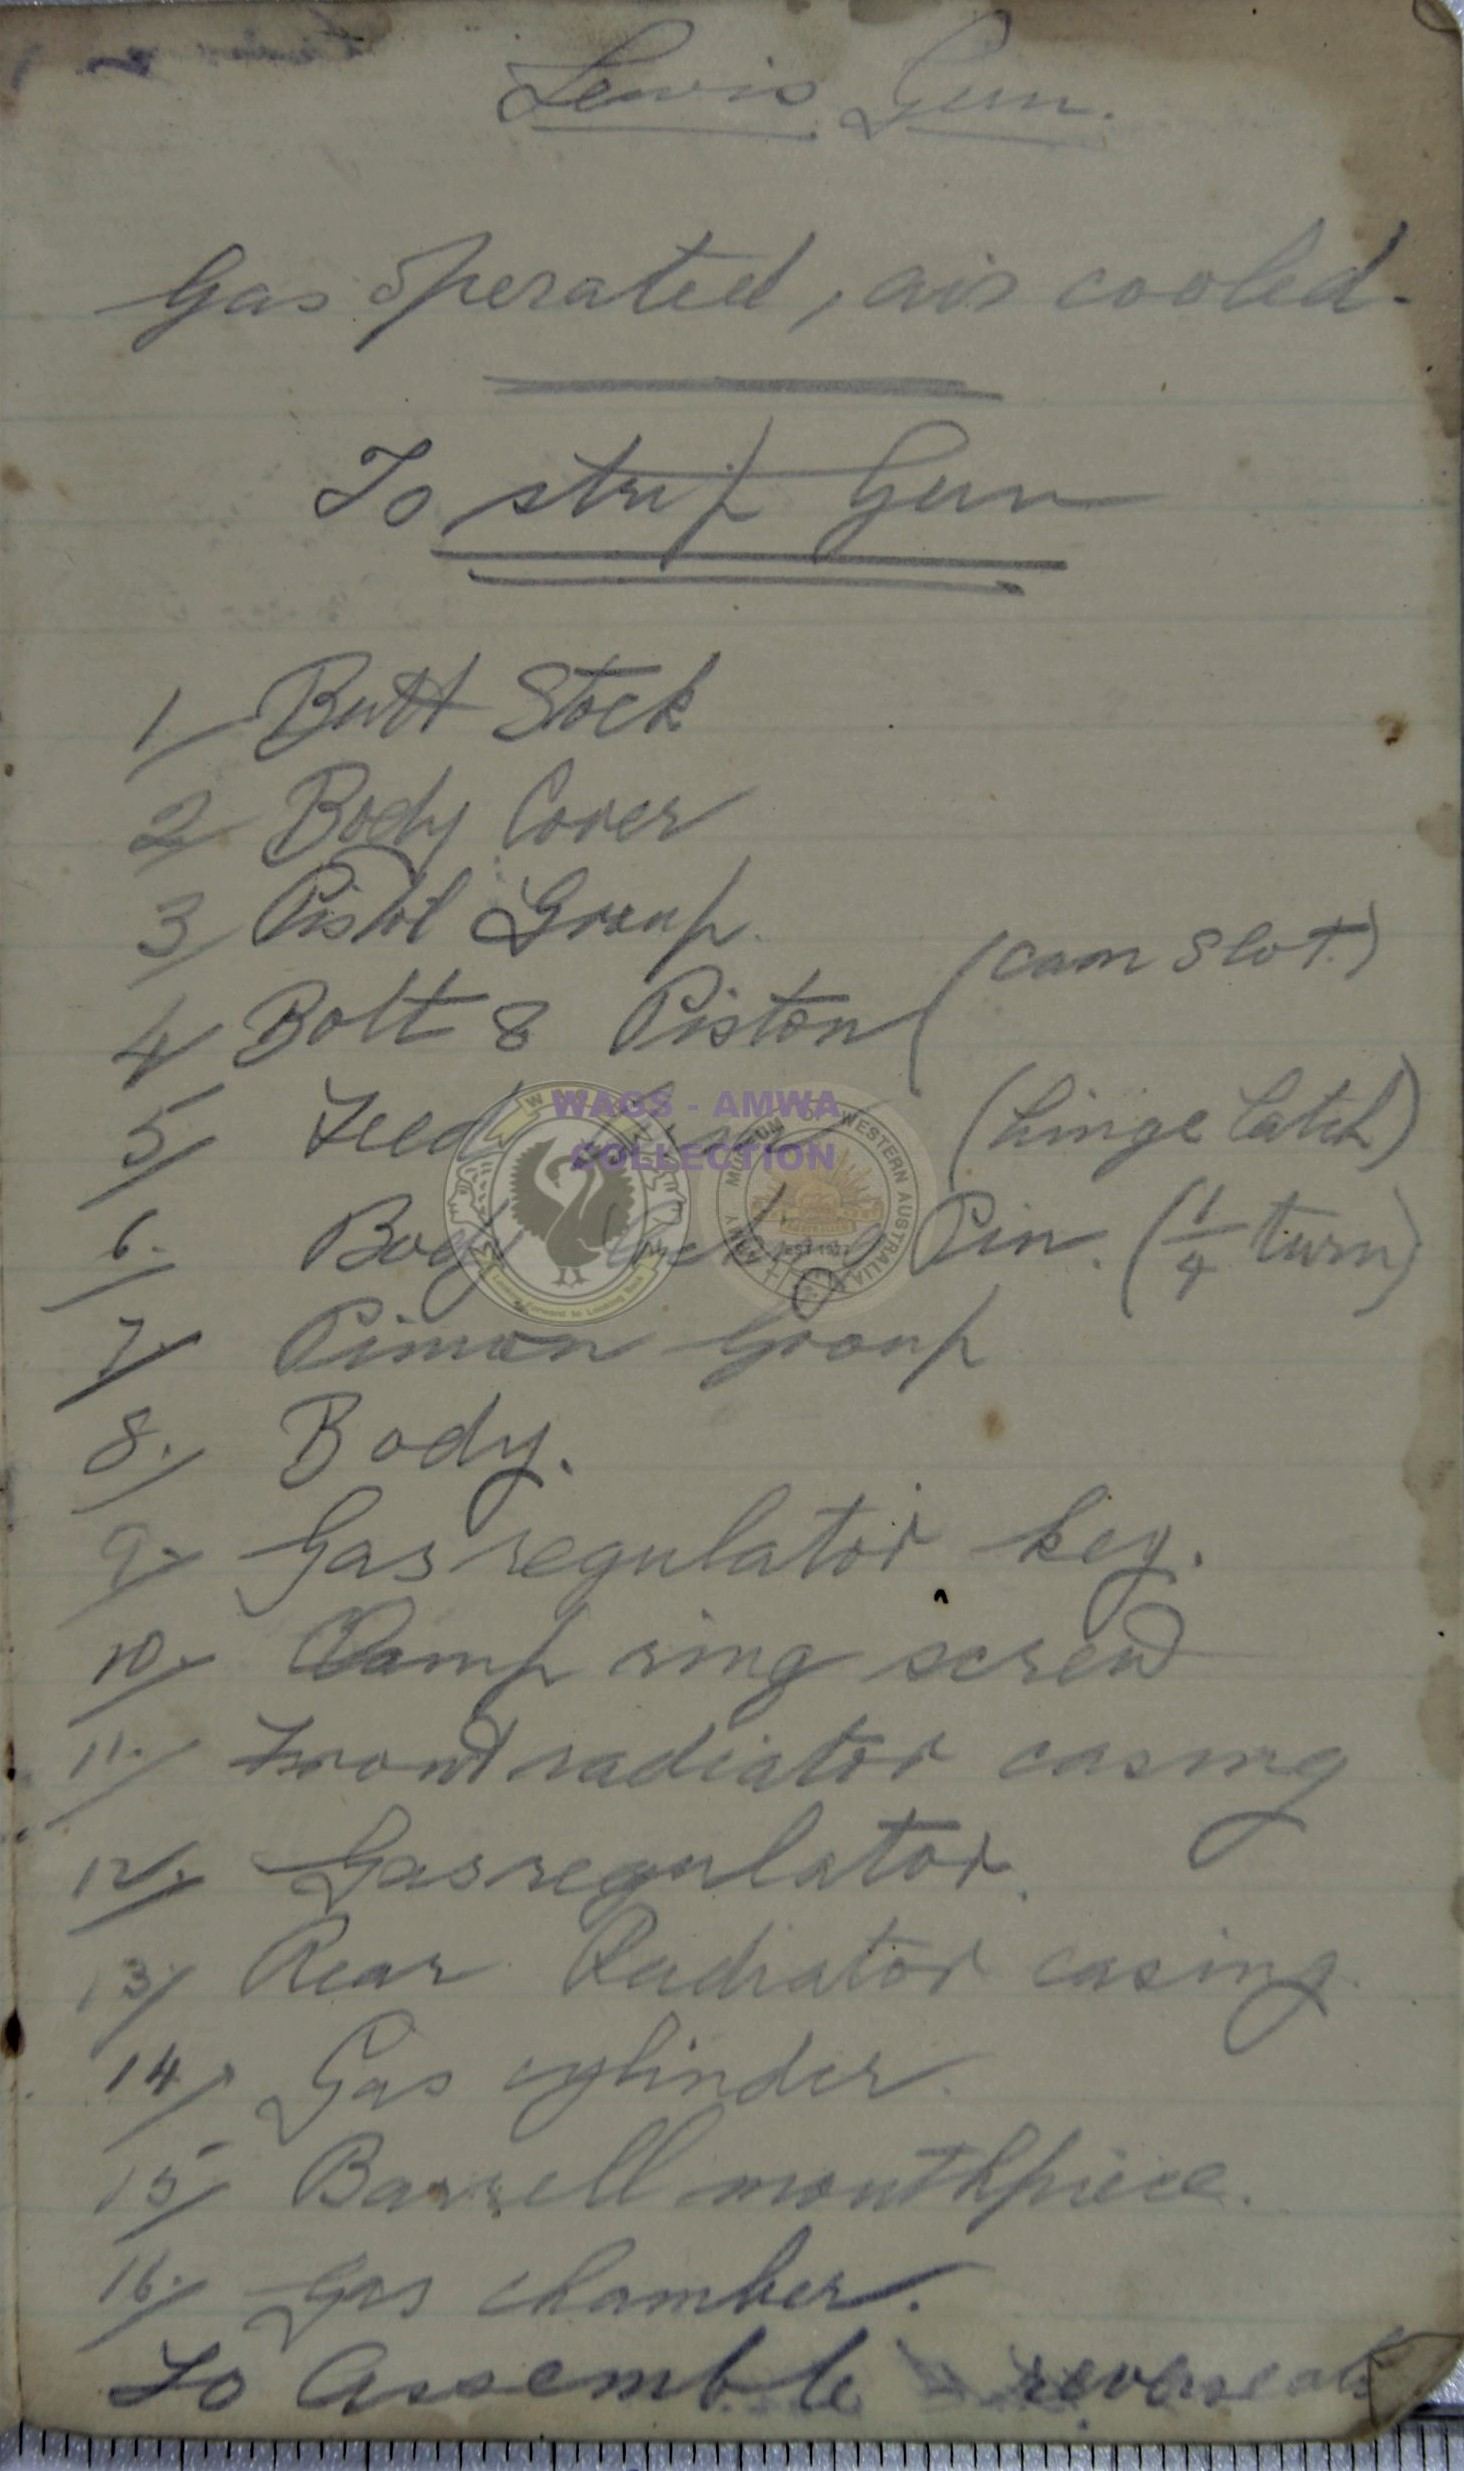 Lewis Gun.
Gas operated, air cooled.
To strip Gun
1/ Butt Stock
2/ Body Cover
3/ Pistol Group.
4/ Bolt & Piston (cam slot.)
5/ Feed (hinge catch)
6./ Body Locking Pin. (1/4 turn)
7./ Pinion Group
8./ Body.
9./ Gas regulator key.
10./ Clamp ring screw
11./ Front radiator casing
12./ Gas regulator.
13/ Rear Radiator casing.
14/ Gas cylinder.
15/ Barrell mouthpiece.
16./ Gas chamber.
To Assemble reverse
WAGS - AMWA
COLLECTION
ARMY MUSEUM OF WESTERN AUSTRALIA